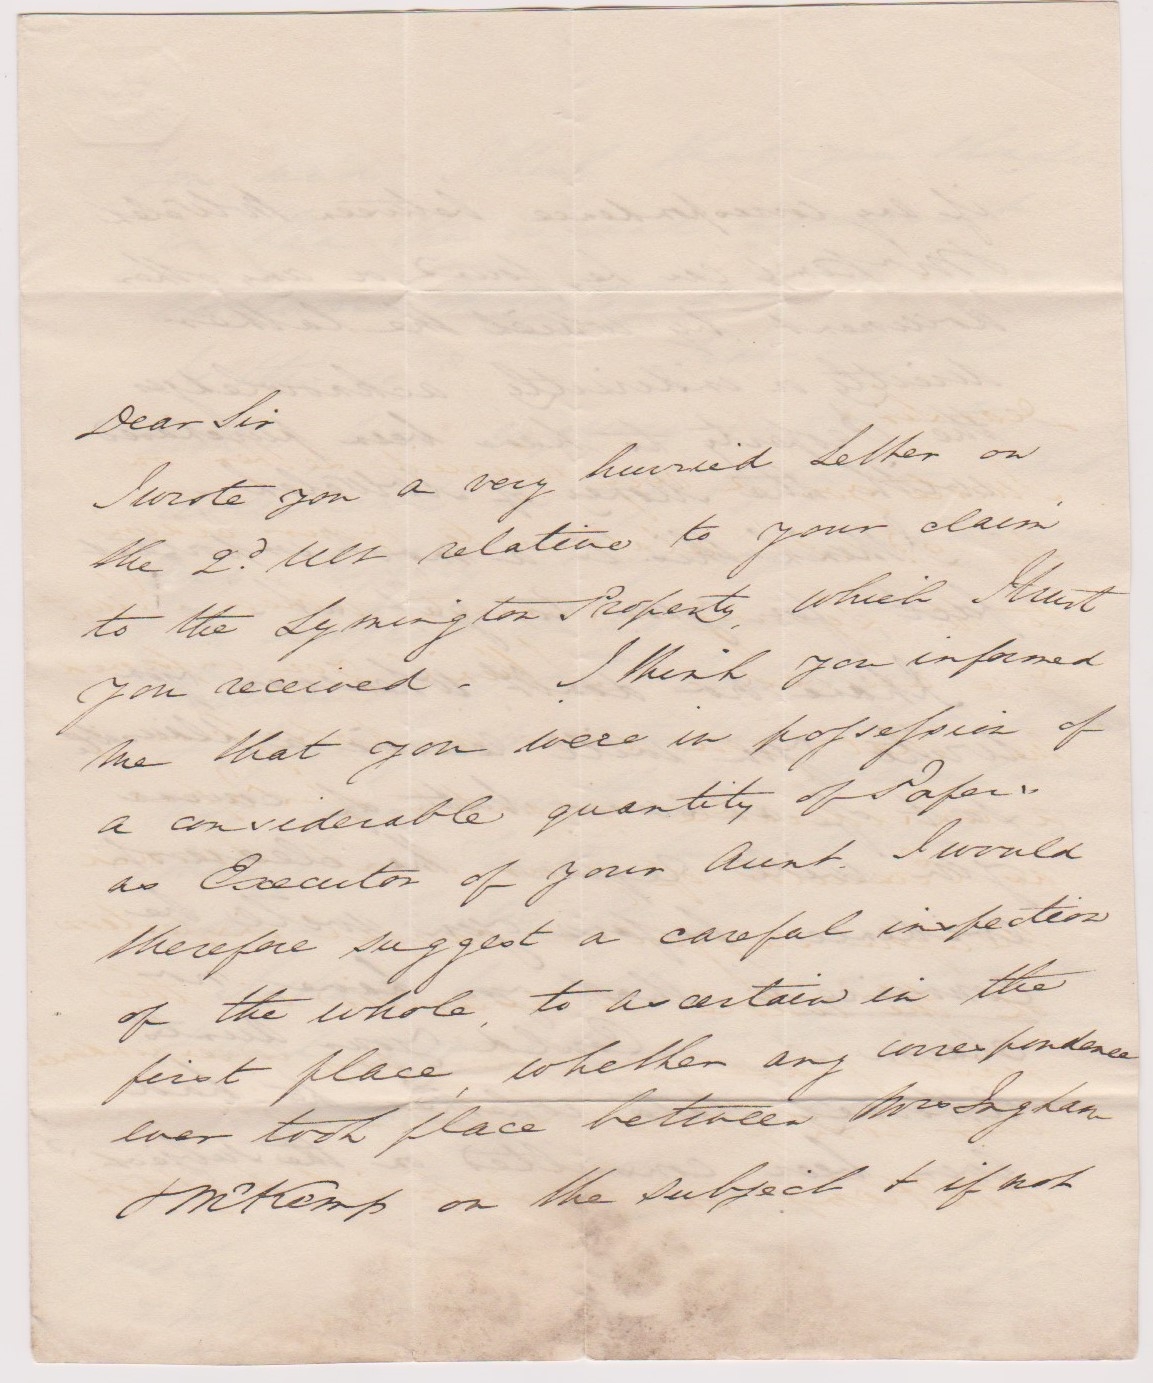 Dear Sir
I wrote you a very hurried Letter on
the 2d. Ult relative to your claim
to the Lymington Property, which I trust
you received - I think you informed
me that you were in possession of
a considerable quantity of Papers
as Executor of your Aunt. I would
therefore suggest a careful inspection
of the whole, to ascertain in the
first place, whether any correspondence
ever took place between Mrs Ingham
& Mr Kemp on the subject & if not